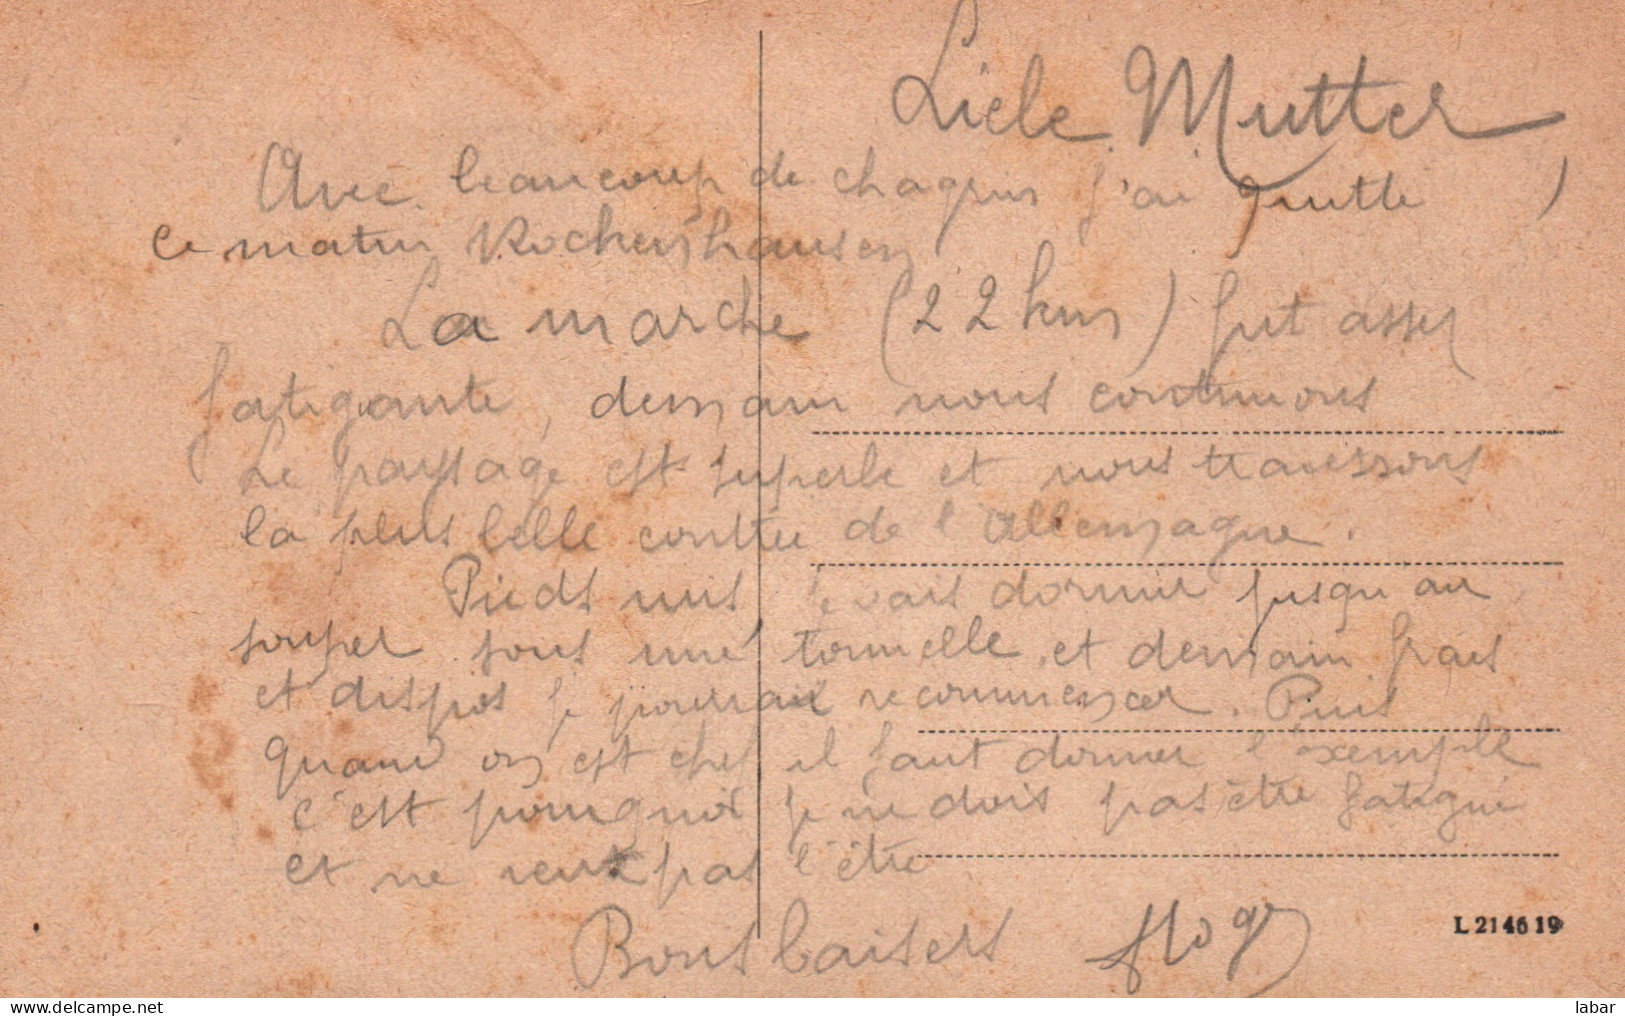 Liebe Mutter,
Avec beaucoup de chagrin j'ai quitté
ce matin Rockenhausen
La marche (22 km) fut assez
fatigante, demain nous continuons
Le paysage est superbe et nous traversons
la plus belle contrée de l'Allemagne.
Pieds nus je vais dormir jusqu'au
souper sous une tonnelle et demain frais
et dispos je pourrai recommencer. Puis
quand on est chef il faut donner l'exemple
c'est pourquoi je ne dois pas être fatigué
et ne veux pas l'être
Bons baisers
L 2146 19
delcampe.net
labar